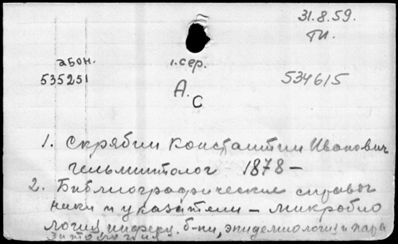 31.8.59.
ТП.
абон. 1.сер.
535251 534615
А.С
1. Скрябин Константин Иванович
гельминтолог 1878 –
2. Библиографические справоч
ники и указатели – микробио
логия, инфекц. б-ни, эпидемиология и пара
зитология